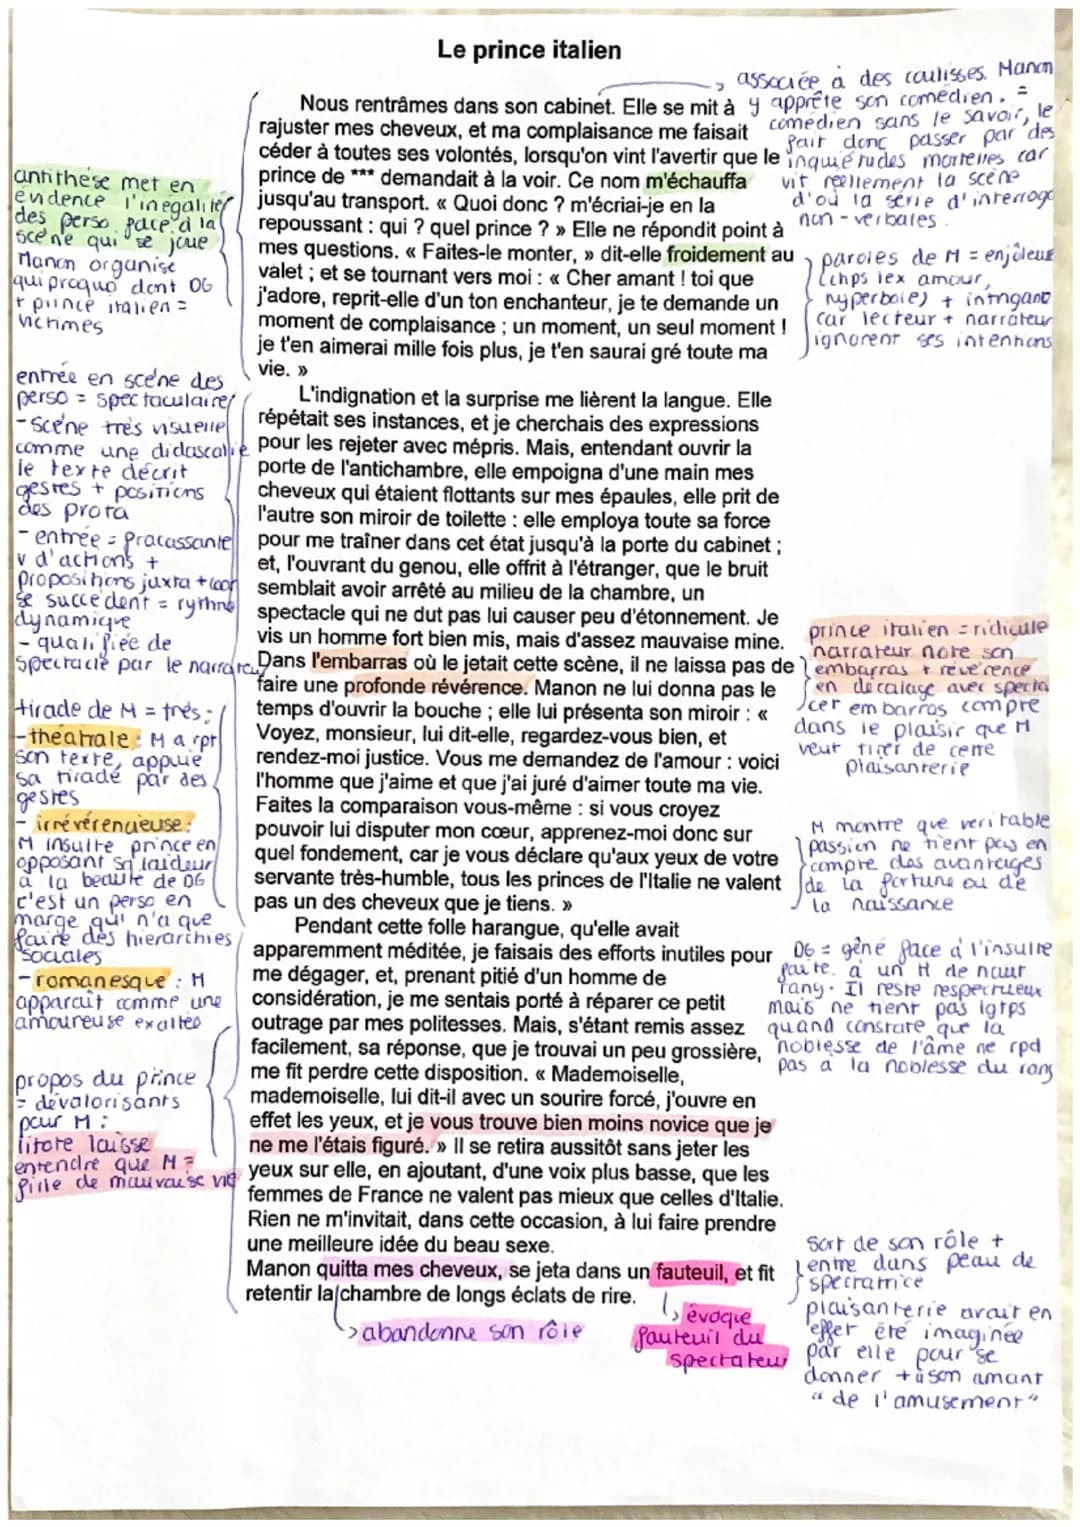 Le prince italien
Nous rentrâmes dans son cabinet. Elle se mit à
rajuster mes cheveux, et ma complaisance me faisait
céder à toutes ses volontés, lorsqu'on vint l'avertir que le
prince de *** demandait à la voir. Ce nom m'échauffa
jusqu'au transport. « Quoi donc ? m'écriai-je en la
repoussant : qui ? quel prince ? » Elle ne répondit point à
mes questions. « Faites-le monter, » dit-elle froidement au
valet ; et se tournant vers moi : « Cher amant ! toi que
j'adore, reprit-elle d'un ton enchanteur, je te demande un
moment de complaisance ; un moment, un seul moment !
je t'en aimerai mille fois plus, je t'en saurai gré toute ma
vie. »
L'indignation et la surprise me lièrent la langue. Elle
répétait ses instances, et je cherchais des expressions
pour les rejeter avec mépris. Mais, entendant ouvrir la
porte de l'antichambre, elle empoigna d'une main mes
cheveux qui étaient flottants sur mes épaules, elle prit de
l'autre son miroir de toilette : elle employa toute sa force
pour me traîner dans cet état jusqu'à la porte du cabinet ;
et, l'ouvrant du genou, elle offrit à l'étranger, que le bruit
semblait avoir arrêté au milieu de la chambre, un
spectacle qui ne dut pas lui causer peu d'étonnement. Je
vis un homme fort bien mis, mais d'assez mauvaise mine.
Dans l'embarras où le jetait cette scène, il ne laissa pas de
faire une profonde révérence. Manon ne lui donna pas le
temps d'ouvrir la bouche ; elle lui présenta son miroir : «
Voyez, monsieur, lui dit-elle, regardez-vous bien, et
rendez-moi justice. Vous me demandez de l'amour : voici
l'homme que j'aime et que j'ai juré d'aimer toute ma vie.
Faites la comparaison vous-même : si vous croyez
pouvoir lui disputer mon cœur, apprenez-moi donc sur
quel fondement, car je vous déclare qu'aux yeux de votre
servante très-humble, tous les princes de l'Italie ne valent
pas un des cheveux que je tiens. »
Pendant cette folle harangue, qu'elle avait
apparemment méditée, je faisais des efforts inutiles pour
me dégager, et, prenant pitié d'un homme de
considération, je me sentais porté à réparer ce petit
outrage par mes politesses. Mais, s'étant remis assez
facilement, sa réponse, que je trouvai un peu grossière,
me fit perdre cette disposition. « Mademoiselle,
mademoiselle, lui dit-il avec un sourire forcé, j'ouvre en
effet les yeux, et je vous trouve bien moins novice que je
ne me l'étais figuré. » Il se retira aussitôt sans jeter les
yeux sur elle, en ajoutant, d'une voix plus basse, que les
femmes de France ne valent pas mieux que celles d'Italie.
Rien ne m'invitait, dans cette occasion, à lui faire prendre
une meilleure idée du beau sexe.
Manon quitta mes cheveux, se jeta dans un fauteuil, et fit
retentir la chambre de longs éclats de rire.
antithèse met en
évidence l'inégalité
des perso face à la
scène qui se joue
Manon organise
quiproquo dont DG
+ prince italien =
victimes
entrée en scène des
perso = spectaculaire
- scène très visuelle
comme une didascalie
le texte décrit
gestes + positions
des prota
- entrée = fracassante
v d'actions +
propositions juxta + coor
se succèdent = rythme
dynamique
- qualifiée de
spectacle par le narrateur
tirade de M = très :
- théâtrale : M a rpt
son texte, appuie
sa tirade par des
gestes
- irrévérencieuse :
M insulte prince en
opposant sa laideur
à la beauté de DG
c'est un perso en
marge qui n'a que
faire des hiérarchies
sociales
- romanesque : M
apparaît comme une
amoureuse exaltée
propos du prince
= dévalorisants
pour M :
litote laisse
entendre que M =
fille de mauvaise vie
associée à des coulisses. Manon
y apprête son comédien. =
comédien sans le savoir, le
fait donc passer par des
inquiétudes mortelles car
vit réellement la scène
d'où la série d'interroge
non-verbales.
paroles de M = enjôleuse
(chps lex amour,
hyperbole) + intrigant
car lecteur + narrateur
ignorent ses intentions
prince italien = ridicule
narrateur note son
embarras + révérence
en décalage avec specta
cet embarras compte
dans le plaisir que M
veut tirer de cette
plaisanterie
M montre que véritable
passion ne tient pas en
compte des avantages
de la fortune ou de
la naissance
DG = gêné face à l'insulte
faite à un H de haut
rang. Il reste respectueux
mais ne tient pas lgtps
quand constate que la
noblesse de l'âme ne rpd
pas à la noblesse du rang
sort de son rôle +
entre dans peau de
spectatrice
plaisanterie avait en
effet été imaginée
par elle pour se
donner + à son amant
"de l'amusement"
abandonne son rôle
évoque
fauteuil du
spectateur